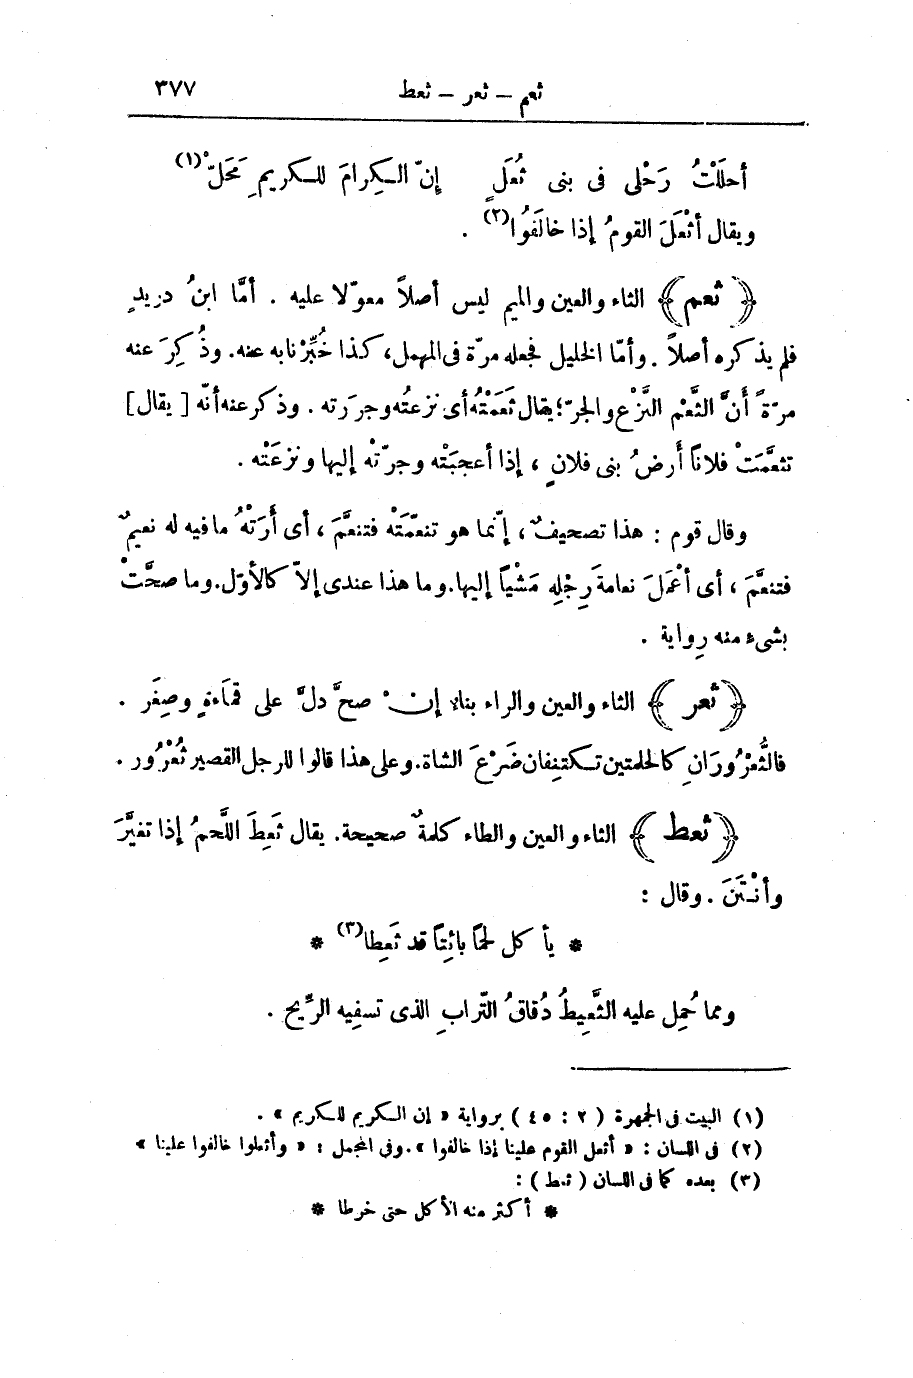 ثعم – ثعر – ثعط ٣٧٧
أحلَلْتُ رَحْلى فى بنى ثُعَلٍ إنّ الكِرامَ للكريمِ مَحَلّْ(١)
ويقال أثْعَلَ القومُ إذا خالَفُوا(٢) .
﴿ ثعم ﴾ الثاء والعين والميم ليس أصلاً معوّلا عليه . أمَّا ابنُ دريدٍ
فلم يذكره أصلاً . وأمّا الخليل فجعله مرّة فى المهمل، كذا خُبِّرْنا به عنه. وذُكِرَ عنه
مرّةً أنَّ الثَّعْم النَّزْع والجرّ؛ يقال ثَعَمْتُه أى نزعتُه وجررته . وذكر عنه أنّه [ يقال ]
تثعَّمَتْ فلاناً أرضُ بنى فلانٍ ، إذا أعجبَتْه وجرّتْه إليها ونزعَتْه .
وقال قوم : هذا تصحيفٌ، إنّما هو تنعّمَتْه فتنعَّمَ ، أى أَرَتْهُ ما فيه له نعيمٌ
فتنعَّمَ ، أى أعْمَلَ نعامةَ رِجْلِه مَشْياً إليها. وما هذا عندى إلاّ كالأوّل. وما صحَّتْ
بشىء منه رِواية .
﴿ ثعر ﴾ الثاء والعين والراء بناءٌ إن صحَّ دلَّ على قَماءَةٍ وصِغَر .
فالثُّعْرُورَانِ كالحلمتين تكتنِفان ضَرْعَ الشاة. وعلى هذا قالوا للرجل القصير ثُعْرُور .
﴿ ثعط ﴾ الثاء والعين والطاء كلمةٌ صحيحة. يقال ثَعِطَ اللَّحمُ إذا تغيَّرَ
وأنْتَنَ . وقال :
* يأكل لحمًا بائِتاً قد ثَعِطا(٣) *
ومما حُمِل عليه الثَّعِيطُ دُقاقُ التّرابِ الذى تسفِيه الرِّيح .
(١) البيت فى الجمهرة ( ٢ : ٤٥ ) برواية « إن الكريم للكريم » .
(٢) فى اللسان : « أثعل القوم علينا إذا خالفوا » . وفى المجمل : « وأثعلوا خالفوا علينا »
(٣) بعده كما فى اللسان ( ثعط ) :
* أكثر منه الأكل حتى خرطا *